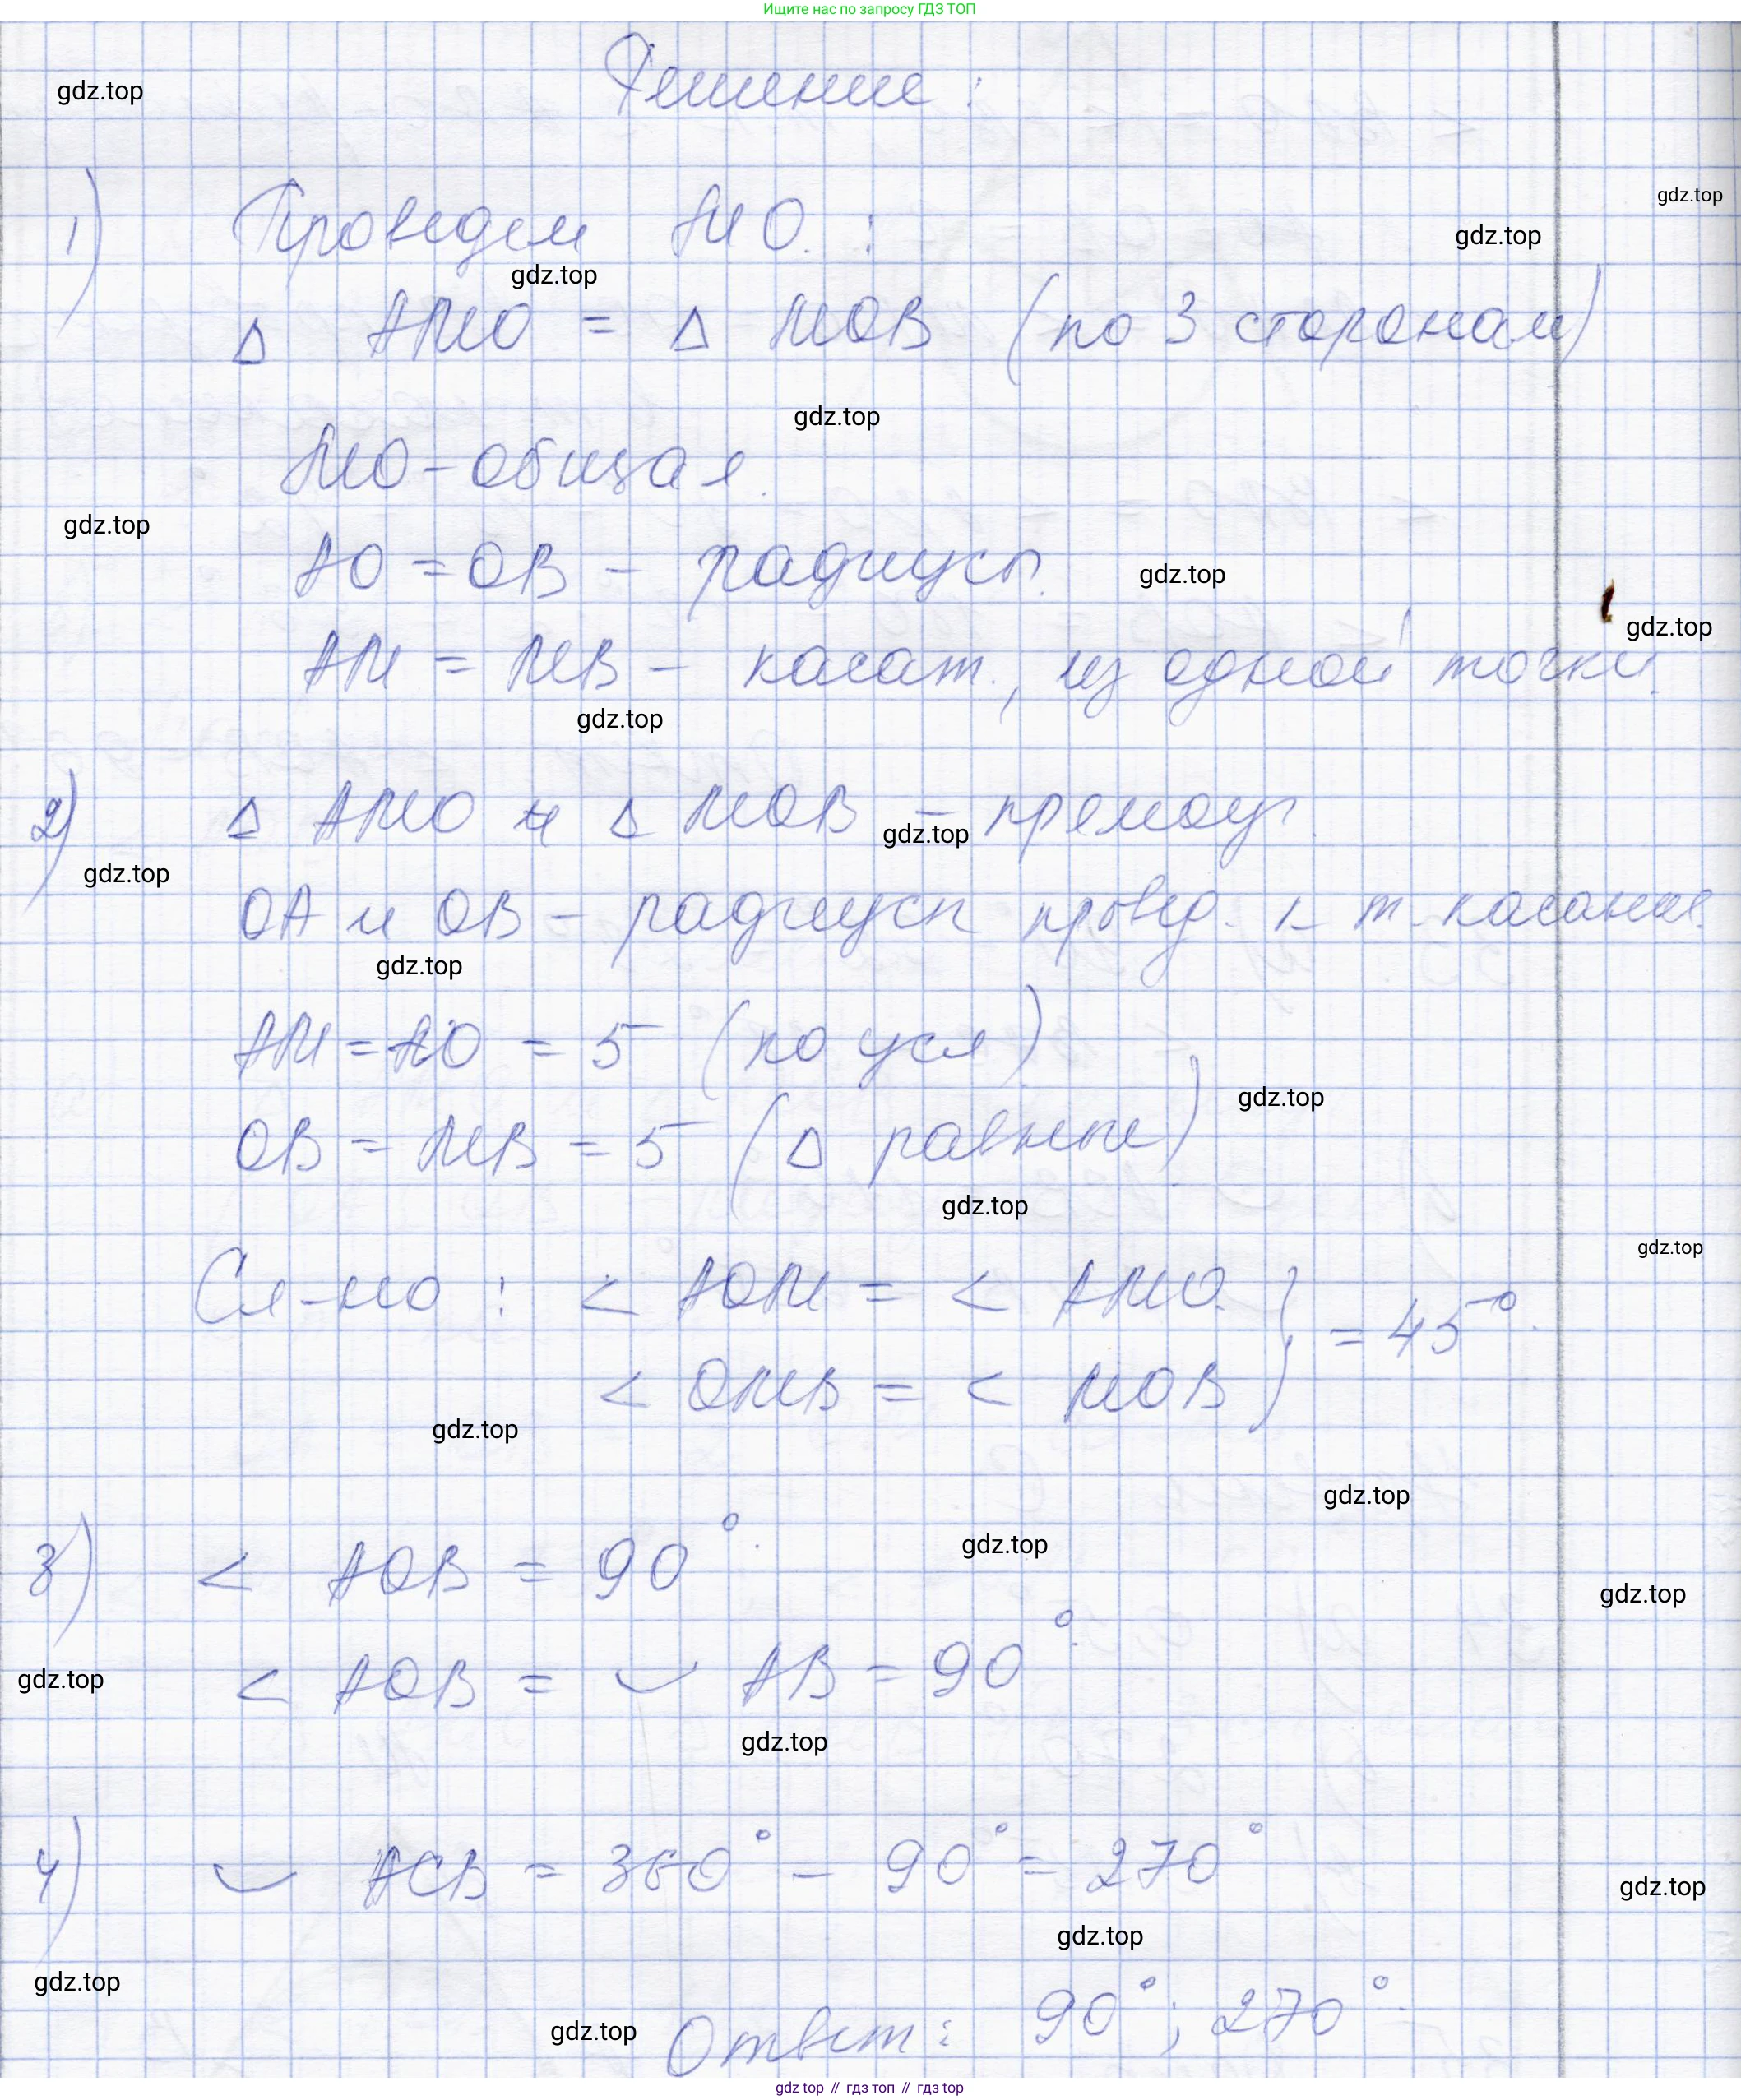 Ищите нас по запросу ГДЗ ТОП
Решение:
gdz.top
gdz.top
1) Проведем МО:
gdz.top
gdz.top
△ АМО = △ МОВ (по 3 сторонам)
gdz.top
МО - общая.
gdz.top
АО = ОВ - радиусы.
gdz.top
gdz.top
АМ = МВ - касат., из одной точки.
gdz.top
2) △ АМО и △ МОВ - прямоуг.
gdz.top
gdz.top
ОА и ОВ - радиусы провед. к т. касания.
gdz.top
АМ = АО = 5 (по усл)
gdz.top
ОВ = МВ = 5 (△ равные)
gdz.top
gdz.top
Сл-но: < АОМ = < АМО
< ОМВ = < МОВ } = 45°.
gdz.top
gdz.top
gdz.top
3) < АОВ = 90°.
gdz.top
< АОВ = ◡ АВ = 90°.
gdz.top
gdz.top
4) ◡ АСВ = 360° - 90° = 270°
gdz.top
gdz.top
gdz.top
Ответ: 90°; 270°.
gdz.top
gdz top // гдз топ // gdz top